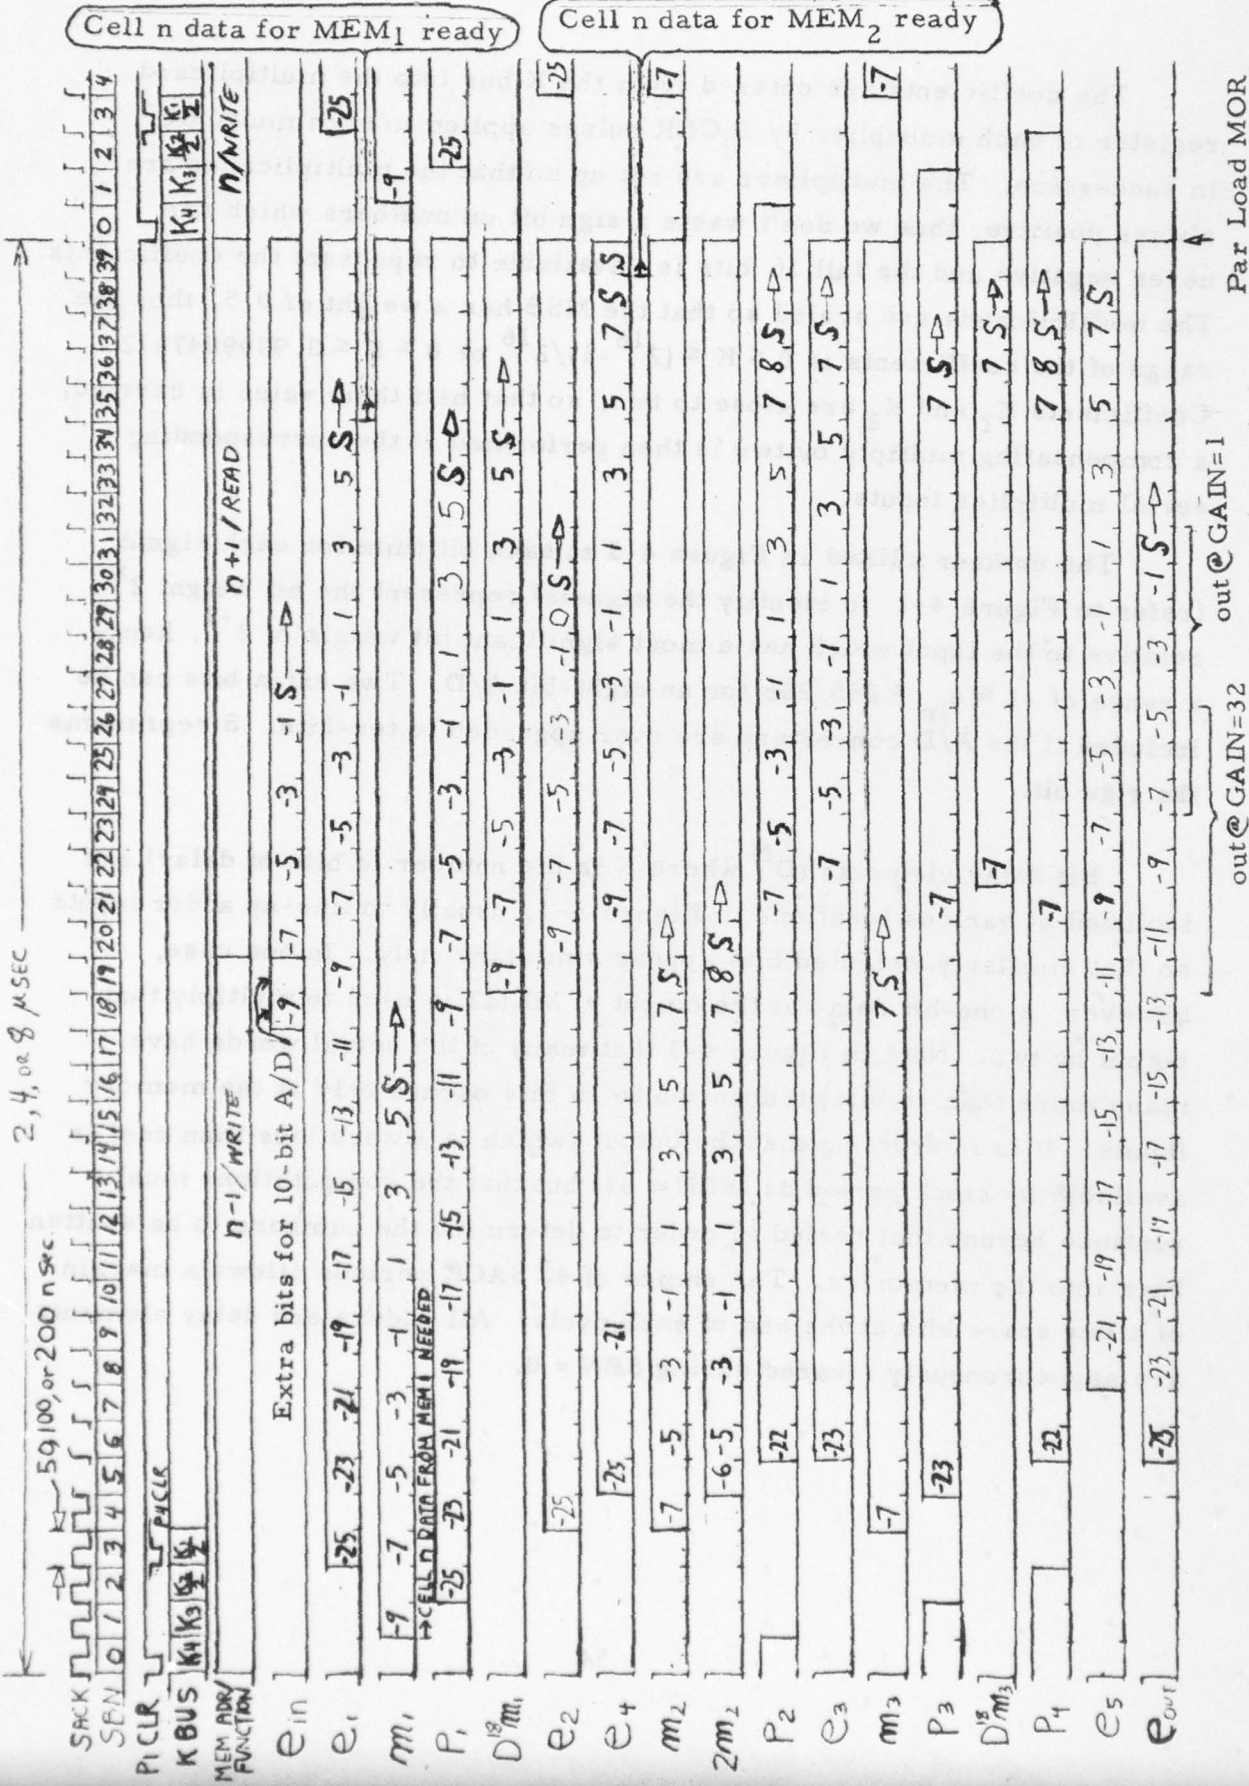 2, 4, or 8 µSEC
50,100, or 200 nsec.
SACK
SBN 0 1 2 3 4 5 6 7 8 9 10 11 12 13 14 15 16 17 18 19 20 21 22 23 24 25 26 27 28 29 30 31 32 33 34 35 36 37 38 39 0 1 2 3 4
P1CLR P4CLR
K BUS K4 K3 K2/2 K1/2 K4 K3 K2/2 K1/2
MEM ADR/ FUNCTION n-1/WRITE n+1/READ n/WRITE
ein Extra bits for 10-bit A/D -7 -7 -5 -3 -1 S
e1 -25 -23 -21 -19 -17 -15 -13 -11 -9 -7 -5 -3 -1 1 3 5 S -25
m1 -9 -7 -5 -3 -1 1 3 5 S -9
CELL n DATA FROM MEM1 NEEDED
P1 -25 -23 -21 -19 -17 -15 -13 -11 -9 -7 -5 -3 -1 1 3 5 S -25
D18m1 -9 -7 -5 -3 -1 1 3 5 S
e2 -25 -9 -7 -5 -3 -1 0 S -25
e4 -25 -21 -9 -7 -5 -3 -1 1 3 5 7 S S
m2 -7 -5 -3 -1 1 3 5 7 S -7
2m2 -6 -5 -3 -1 1 3 5 7 8 S
P2 -22 -7 -5 -3 -1 1 3 5 7 8 S
e3 -23 -7 -5 -3 -1 1 3 5 7 S
m3 -7 7 S -7
P3 -23 -7 7 S
D18m3 -7 7 S
P4 -22 -7 7 8 S
e5 -21 -19 -17 -15 -13 -11 -9 -7 -5 -3 -1 1 3 5 7 S
eout -25 -23 -21 -19 -17 -15 -13 -11 -9 -7 -5 -3 -1 S
Cell n data for MEM1 ready
Cell n data for MEM2 ready
out@GAIN=32
out@GAIN=1
Par Load MOR